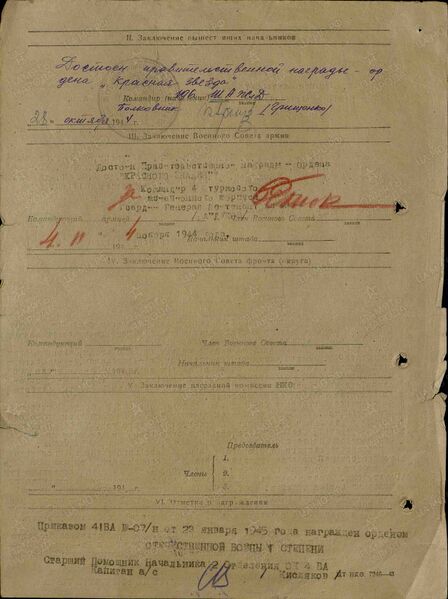 II. Заключение вышестоящих начальников
Достоин правительственной награды – ор
дена „Красная звезда"
Командир
Полковник (Грищенко)
28 октября 194 4.
III. Заключение Военного Совета армии
Достоин Правительственной награды – ордена
Командир 4 Штурмового
Авиационного корпуса
Гвард. Генерал Лейтенант
Командующий армией Член Военного Совета
4. 11 4 ноября 1944 года. Начальник штаба
IV. Заключение Военного Совета фронта (округа)
Командующий Член Военного Совета
Начальник штаба
194 г.
V. Заключение наградной комиссии НКО
Председатель
1.
Члены 2.
3.
194
VI. Отметка о награждении
Приказом 4 ВА № 07/н от 23 января 1945 года награжден орденом
ОТЕЧЕСТВЕННОЙ ВОЙНЫ СТЕПЕНИ
Старший Помощник Начальника Отделения ОК 4 ВА
Капитан а/с Кисляков